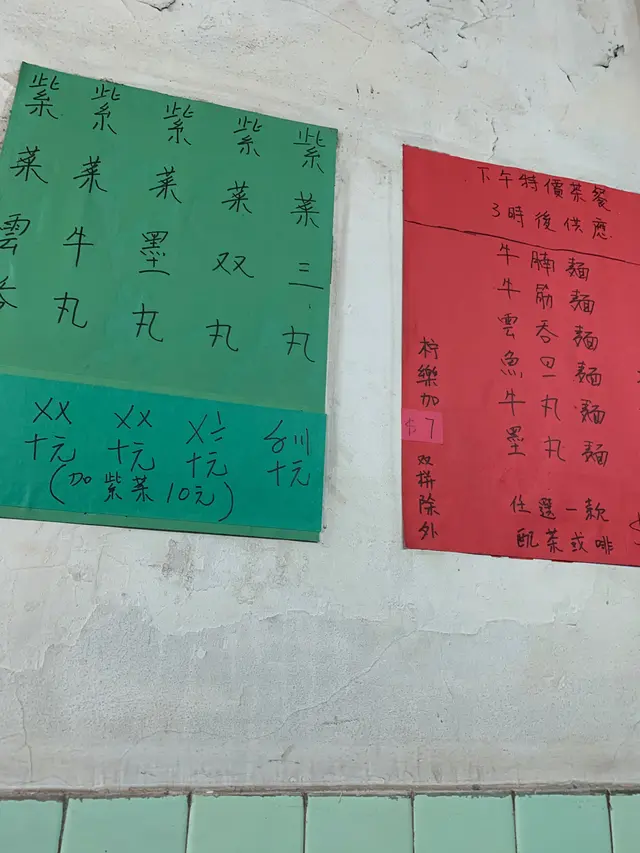 紫菜三丸
紫菜双丸
紫菜墨丸
紫菜牛丸
紫菜雲吞
〥〣十元
〤〧十元
〤〤十元
〤〤十元
(加紫菜10元)
下午特價茶餐
3時後供應
牛腩麵
牛筋麵
雲吞麵
魚旦麵
牛丸麵
墨丸麵
任選一款
配茶或啡
柠樂加$7双拼除外